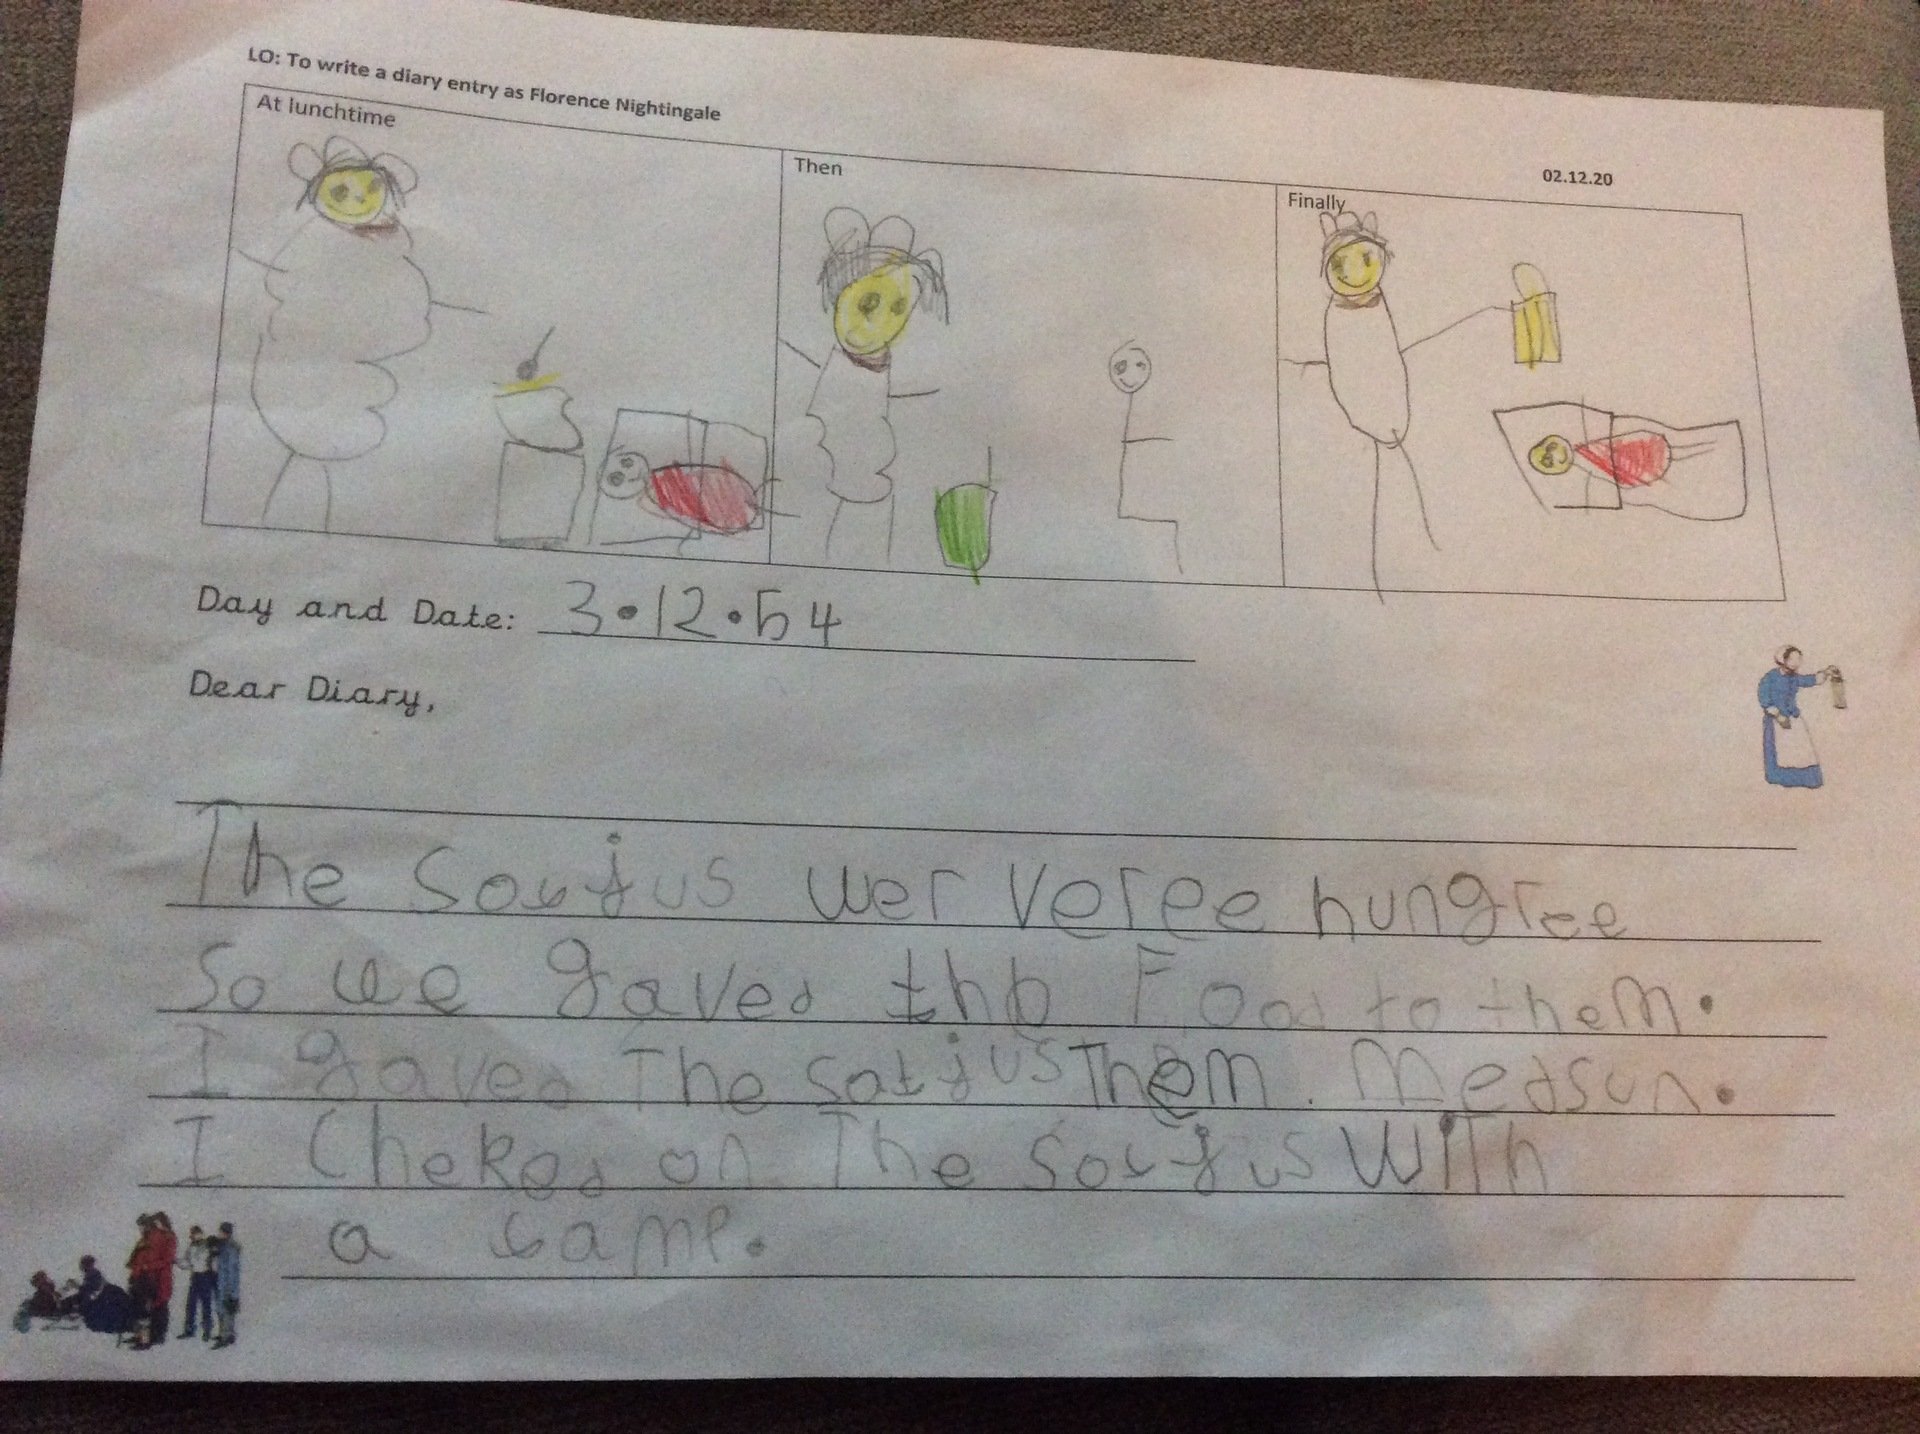 LO: To write a diary entry as Florence Nightingale
02.12.20
At lunchtime
Then
Finally
Day and Date: 3.12.54
Dear Diary,
The Soljus wer veree hungree
So we gaved the Food to them.
I gaved The Soljus Them. Medsun.
I Cheked on The Soljus WiTh
a lamp.